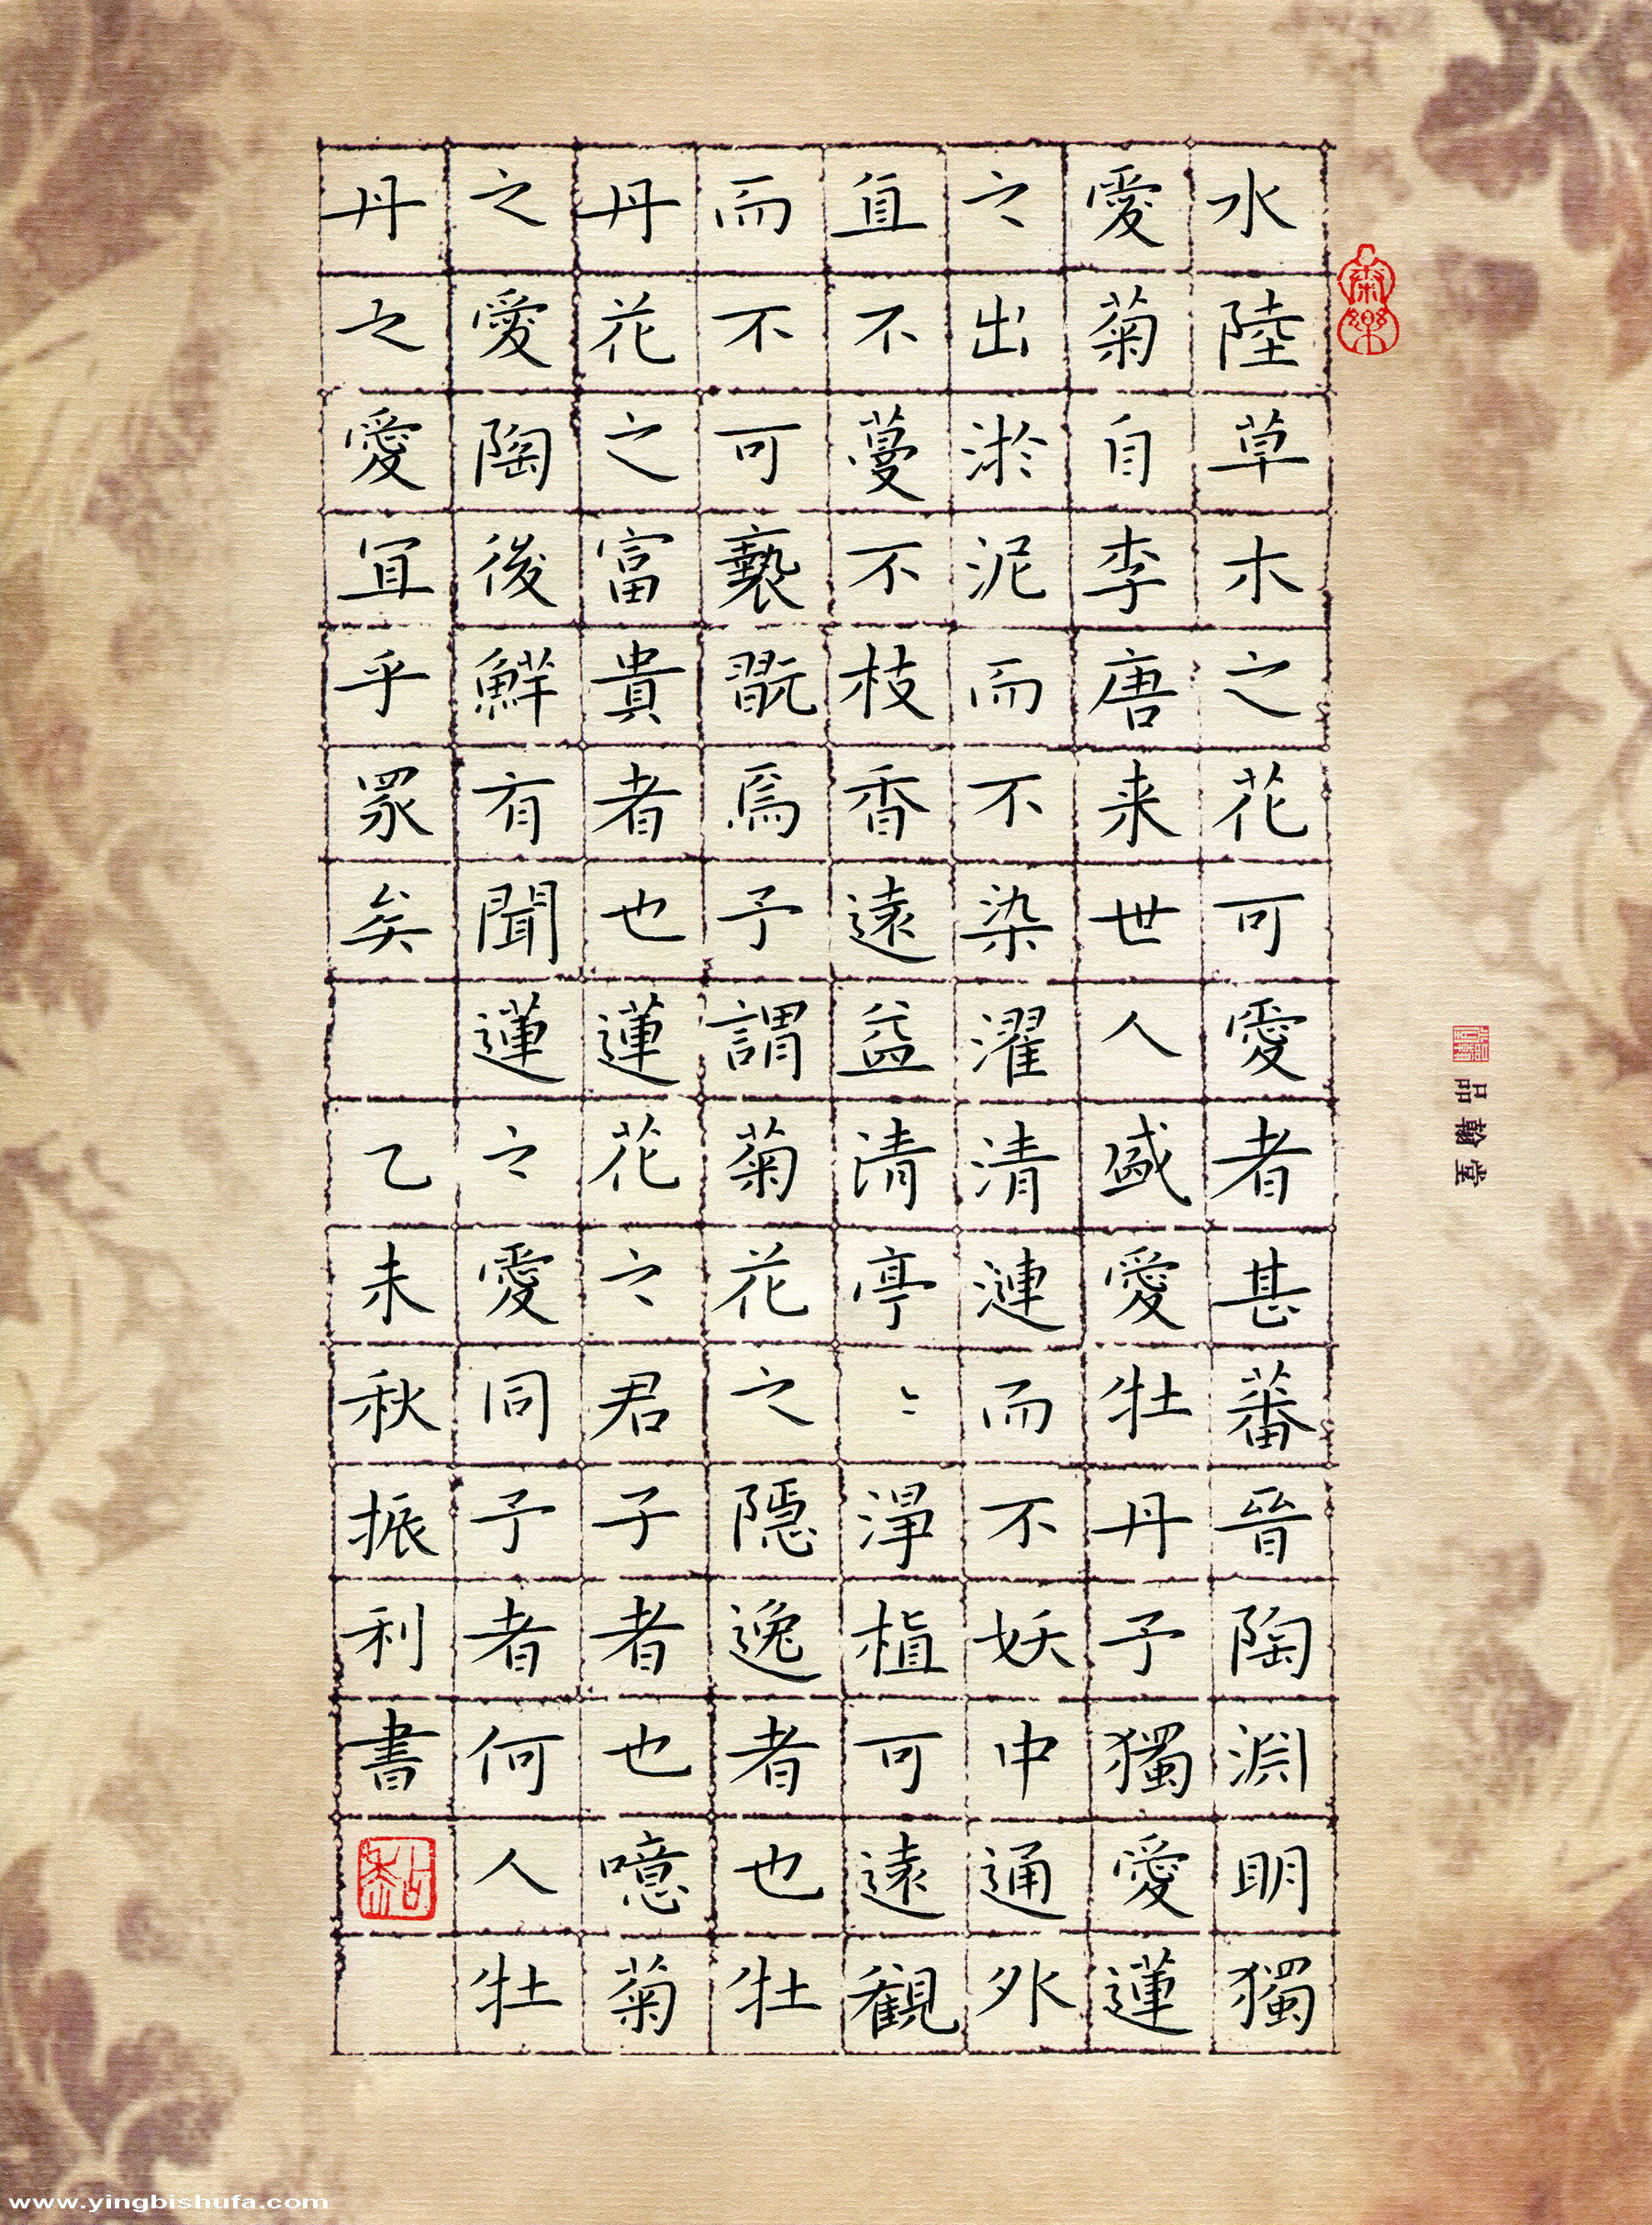 水陸草木之花可愛者甚蕃晉陶淵明獨
愛菊自李唐来世人盛愛牡丹予獨愛蓮
之出淤泥而不染濯清漣而不妖中通外
直不蔓不枝香遠益清亭〻淨植可遠觀
而不可褻翫焉予謂菊花之隱逸者也牡
丹花之富貴者也蓮花之君子者也噫菊
之愛陶後鮮有聞蓮之愛同予者何人牡
丹之愛宜乎眾矣 乙未秋振利書
品翰堂
www.yingbishufa.com